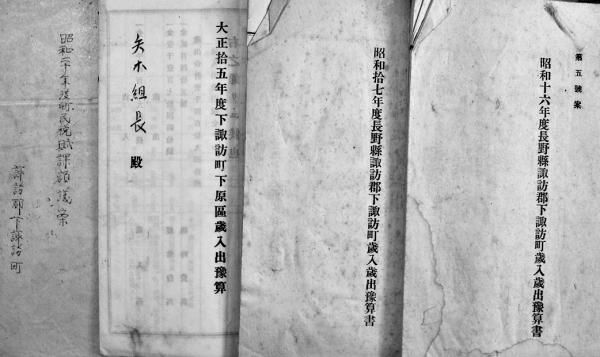 第五號案
昭和十六年度長野縣諏訪郡下諏訪町歲入歲出豫算書
昭和拾七年度長野縣諏訪郡下諏訪町歲入歲出豫算書
大正拾五年度下諏訪町下原區歲入出豫算
矢木組長 殿
昭和二十年度町民稅賦課額議案
諏訪郡下諏訪町